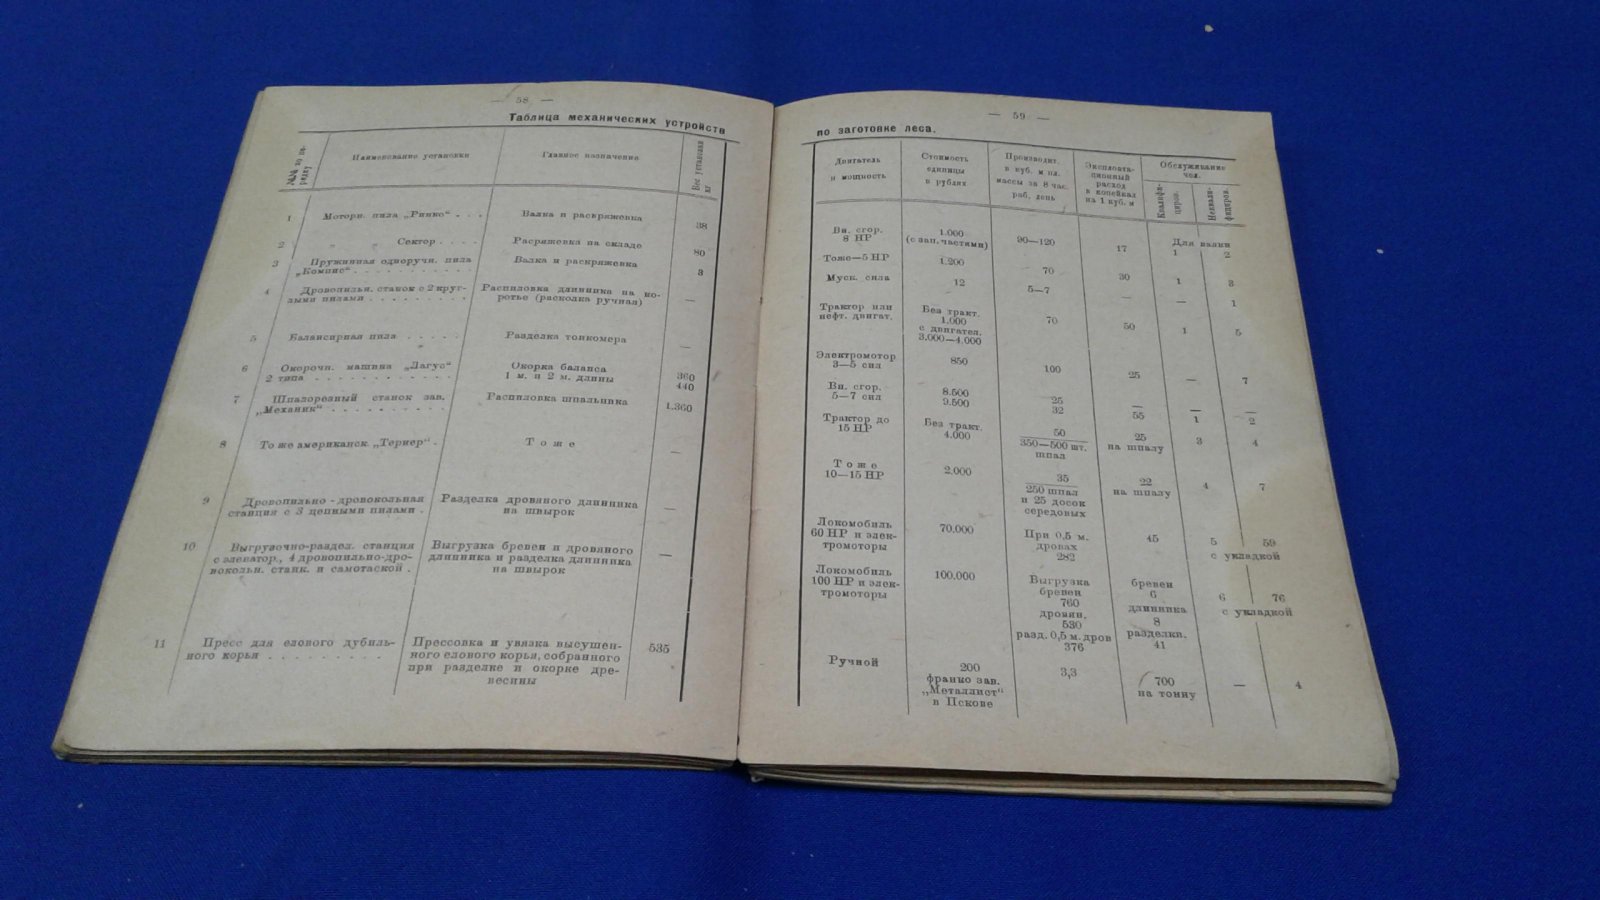 — 58 —
Таблица механических устройств
№№ по по-
рядку
Наименование установки
Главное назначение
Вес установки
кг
1 Моторн. пила „Ринко“ . . . Валка и раскряжевка 38
2 „ „ Сектор . . . . Расряжевка на складе 80
3 Пружинная одноручн. пила Валка и раскряжевка 3
„Компис“ . . . . . . . . . . .
4 Дровопильн. станок с 2 круг- Распиловка длинника на ко- —
лыми пилами . . . . . . . . . ротье (расколка ручная)
5 Балансирная пила . . . . . Разделка тонкомера —
6 Окорочн. машина „Дагус“ Окорка баланса 360
2 типа . . . . . . . . . . . . . 1 м. и 2 м. длины 440
7 Шпалорезный станок зав. Распиловка шпальника 1.360
„Механик“ . . . . . . . . . .
8 То же американск. „Териер“ . Т о ж е —
9 Дровопильно - дровокольная Разделка дровяного длинника —
станция с 3 цепными пилами . на швырок
10 Выгрузочно-раздел. станция Выгрузка бревен и дровяного —
с элеватор., 4 дровопильно-дро- длинника и разделка длинника
вокольн. станк. и самотаской . на швырок
11 Пресс для елового дубиль- Прессовка и увязка высушен- 535
ного корья . . . . . . . . . ного елового корья, собранного
при разделке и окорке дре-
весины
— 59 —
по заготовке леса.
Двигатель
и мощность
Стоимость
единицы
в рублях
Производит.
в куб. м пл.
массы за 8 час.
раб. день
Эксплоата-
ционный
расход
в копейках
на 1 куб. м
Обслуживание
чел.
Квалифи-
циров.
Неквали-
фициров.
Вн. сгор. 1.000 90—120 17 Для валки
8 HP (с зап. частями) 1 2
Тоже—5 HP 1.200 70 30 1 3
Муск. сила 12 5—7 — — 1
Трактор или Без тракт. 70 50 1 5
нефт. двигат. 1.000
с двигател.
3.000—4.000
Электромотор 850 100 25 — 7
3—5 сил
Вн. сгор. 8.500 25 — — —
5—7 сил 9.500 32 55 1 2
Трактор до Без тракт. 50 25 3 4
15 HP 4.000 350—500 шт. на шпалу
шпал
Т о ж е 2.000 35 22 4 7
10—15 HP 250 шпал на шпалу
и 25 досок
середовых
Локомобиль 70.000 При 0,5 м. 45 5 59
60 HP и элек- дровах с укладкой
тромоторы 282
Локомобиль 100.000 Выгрузка бревен 6 76
100 HP и элек- бревен 6 с укладкой
тромоторы 760 длинника
дровян. 8
530 разделки.
разд. 0,5 м. дров 41
376
Ручной 200 3,3 700 — 4
франко зав. на тонну
„Металлист“
в Пскове